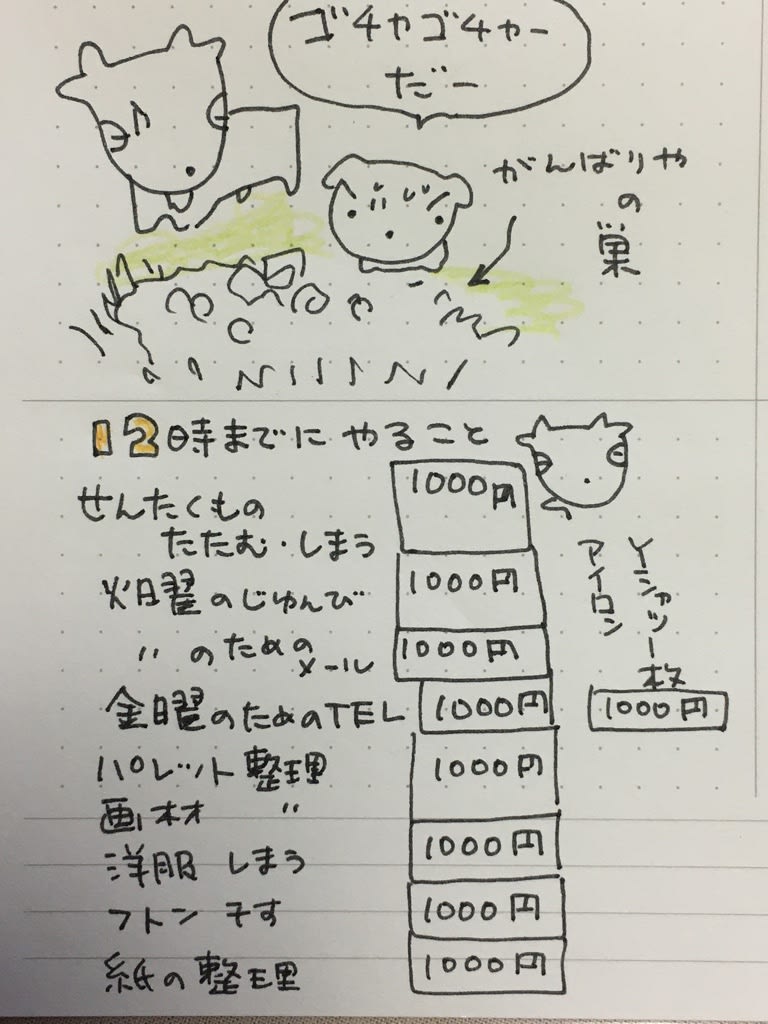 ゴチャゴチャー
だー
がんばりや
の
巣
12時までに やること
せんたくもの
たたむ・しまう
1000円
火曜のじゅんび
1000円
〃 のための
メール
1000円
金曜のためのTEL
1000円
パレット 整理
1000円
画材 〃
洋服 しまう
1000円
フトン そす
1000円
紙の整理
1000円
Yシャツ一枚
アイロン
1000円